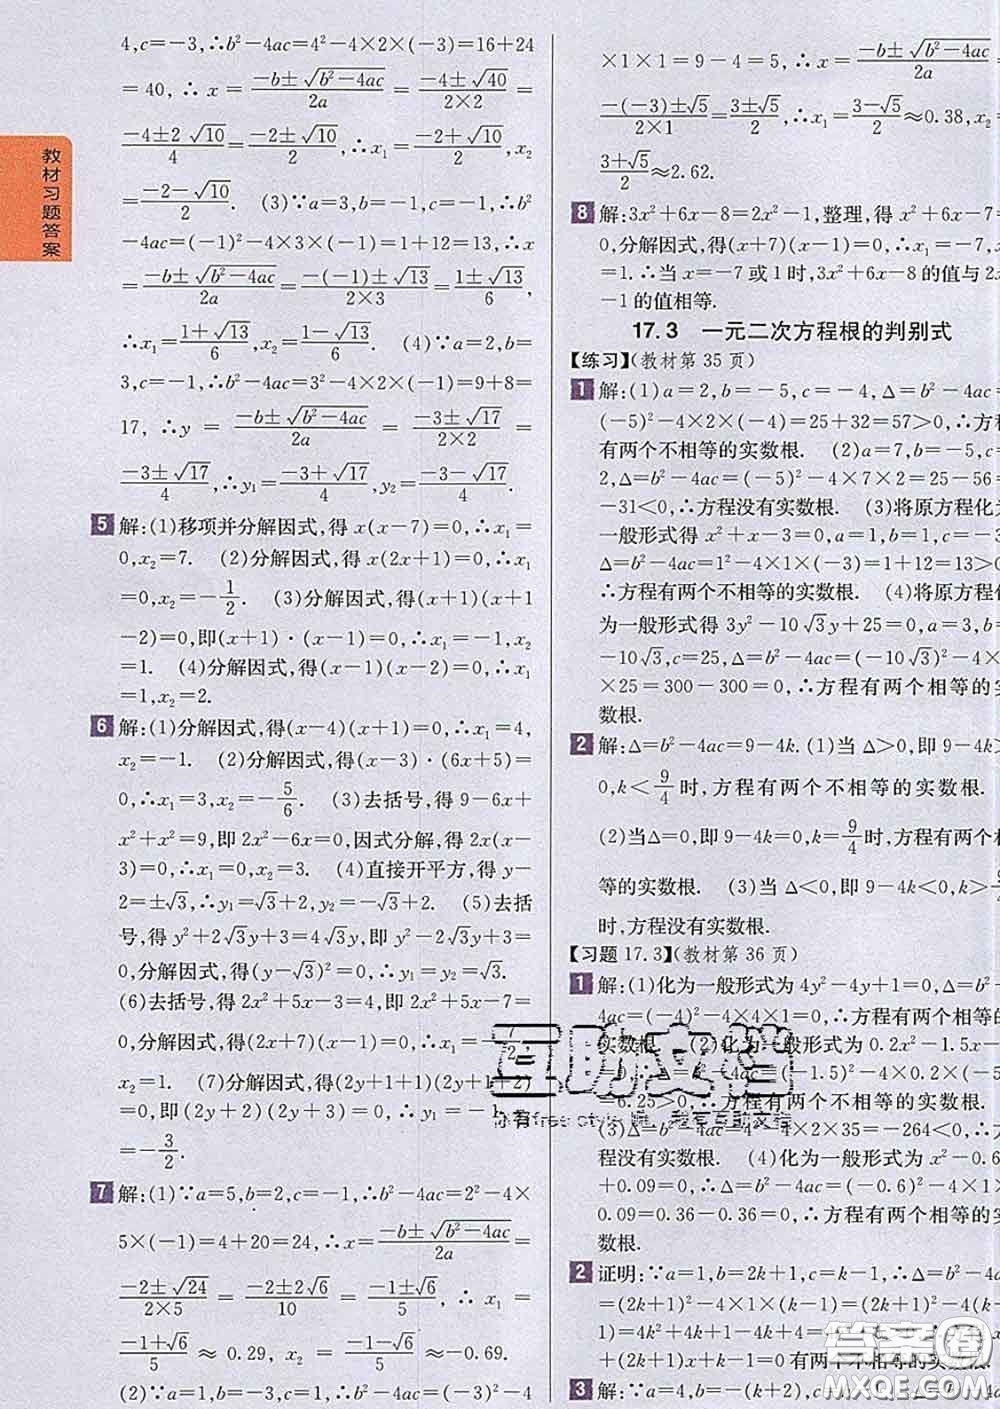 教材习题答案
4,c=-3,∴b²-4ac=4²-4×2×(-3)=16+24
=40, ∴ x = (-b±√(b²-4ac))/(2a) = (-4±√40)/(2×2) =
(-4±2√10)/4 = (-2±√10)/2, ∴x₁ = (-2+√10)/2, x₂
= (-2-√10)/2. (3)∵a=3,b=-1,c=-1,∴b²
-4ac=(-1)²-4×3×(-1)=1+12=13,∴x
= (-b±√(b²-4ac))/(2a) = (-(-1)±√13)/(2×3) = (1±√13)/6,
∴x₁ = (1+√13)/6, x₂ = (1-√13)/6. (4)∵a=2,b=
3,c=-1,∴b²-4ac=3²-4×2×(-1)=9+8=
17, ∴y = (-b±√(b²-4ac))/(2a) = (-3±√17)/(2×2) =
(-3±√17)/4, ∴y₁ = (-3+√17)/4, y₂ = (-3-√17)/4.
5 解:(1)移项并分解因式,得 x(x-7)=0,∴x₁=
0,x₂=7. (2)分解因式,得 x(2x+1)=0,∴x₁
=0,x₂=-1/2. (3)分解因式,得(x+1)(x+1
-2)=0,即(x+1)·(x-1)=0,∴x₁=-1,x₂
=1. (4)分解因式,得(x-1)(x-2)=0,∴x₁
=1,x₂=2.
6 解:(1)分解因式,得(x-4)(x+1)=0,∴x₁=4,
x₂=-1. (2)分解因式,得(x-3)·(6x+5)=
0,∴x₁=3,x₂=-5/6. (3)去括号,得 9-6x+
x²+x²=9,即 2x²-6x=0,因式分解,得 2x(x-
3)=0,∴x₁=0,x₂=3. (4)直接开平方,得 y-
2=±√3,∴y₁=√3+2,y₂=-√3+2. (5)去括
号,得 y²+2√3y+3=4√3y,即 y²-2√3y+3=
0,分解因式,得(y-√3)²=0,∴y₁=y₂=√3.
(6)去括号,得 2x²+5x-3=4,即 2x²+5x-7=
0,分解因式,得(2x+7)(x-1)=0,∴x₁=-7/2,
x₂=1. (7)分解因式,得(2y+1+1)(2y+1+2)
=0,即(2y+2)(2y+3)=0,∴y₁=-1,y₂
=-3/2.
7 解:(1)∵a=5,b=2,c=-1,∴b²-4ac=2²-4×
5×(-1)=4+20=24,∴x= (-b±√(b²-4ac))/(2a) =
(-2±√24)/(2×5) = (-2±2√6)/10 = (-1±√6)/5, ∴ x₁ =
(-1+√6)/5 ≈ 0.29, x₂ = (-1-√6)/5 ≈ -0.69.
(2)∵a=1,b=-3,c=1,∴b²-4ac=(-3)²-4
×1×1=9-4=5, ∴x= (-b±√(b²-4ac))/(2a) =
(-(-3)±√5)/(2×1) = (3±√5)/2, ∴x₁ = (3-√5)/2 ≈0.38, x₂
(3+√5)/2 ≈2.62.
8 解:3x²+6x-8=2x²-1,整理,得 x²+6x-7=
0,分解因式,得(x+7)(x-1)=0,∴x₁=-7,x
=1.∴当 x=-7 或 1 时,3x²+6x-8 的值与 2x
-1 的值相等.
17.3 一元二次方程根的判别式
【练习】(教材第 35 页)
1 解:(1)a=2,b=-5,c=-4,Δ=b²-4ac=
(-5)²-4×2×(-4)=25+32=57>0,∴方程
有两个不相等的实数根. (2)a=7,b=-5,c=
2,Δ=b²-4ac=(-5)²-4×7×2=25-56=
-31<0,∴方程没有实数根. (3)将原方程化为
一般形式得 x²+x-3=0,a=1,b=1,c=-3,
Δ=b²-4ac=1²-4×1×(-3)=1+12=13>0
∴方程有两个不相等的实数根. (4)将原方程化
为一般形式得 3y²-10√3y+25=0,a=3,b=
-10√3,c=25,Δ=b²-4ac=(-10√3)²-4×
×25=300-300=0,∴方程有两个相等的实
数根.
2 解:Δ=b²-4ac=9-4k.(1)当 Δ>0,即 9-4k>
0,k<9/4时,方程有两个不相等的实数根.
(2)当Δ=0,即 9-4k=0,k=9/4时,方程有两个相
等的实数根. (3)当 Δ<0,即 9-4k<0,k>9/4
时,方程没有实数根.
【习题 17.3】(教材第 36 页)
1 解:(1)化为一般形式为 4y²-4y+1=0,Δ=b²-
4ac=(-4)²-4×4×1=0,∴方程有两个相等的
实数根. (2)化为一般形式为 0.2x²-1.5x-
=(-1.5)²-4×0.2×
=6.25>0,∴方程有两个不相等的实数根.
(3)Δ=b²-4ac=4²-4×2×35=-264<0,∴方
程没有实数根. (4)化为一般形式为 x²-0.6
+0.09=0,∴Δ=b²-4ac=(-0.6)²-4×1×
0.09=0.36-0.36=0,∴方程有两个相等的实
数根.
2 证明:∵a=1,b=2k+1,c=k-1,∴Δ=b²-4a
=(2k+1)²-4×1×(k-1)=(2k+1)²-4(k-
1)=4k²+4k+1-4k+4=
有两个不相等的实数根.
3 解:∵a=4,b=-(k+2),c=k-1,∴
互助文档
你有free style嘛,我有互助文档
答案圈
MXQE.COM